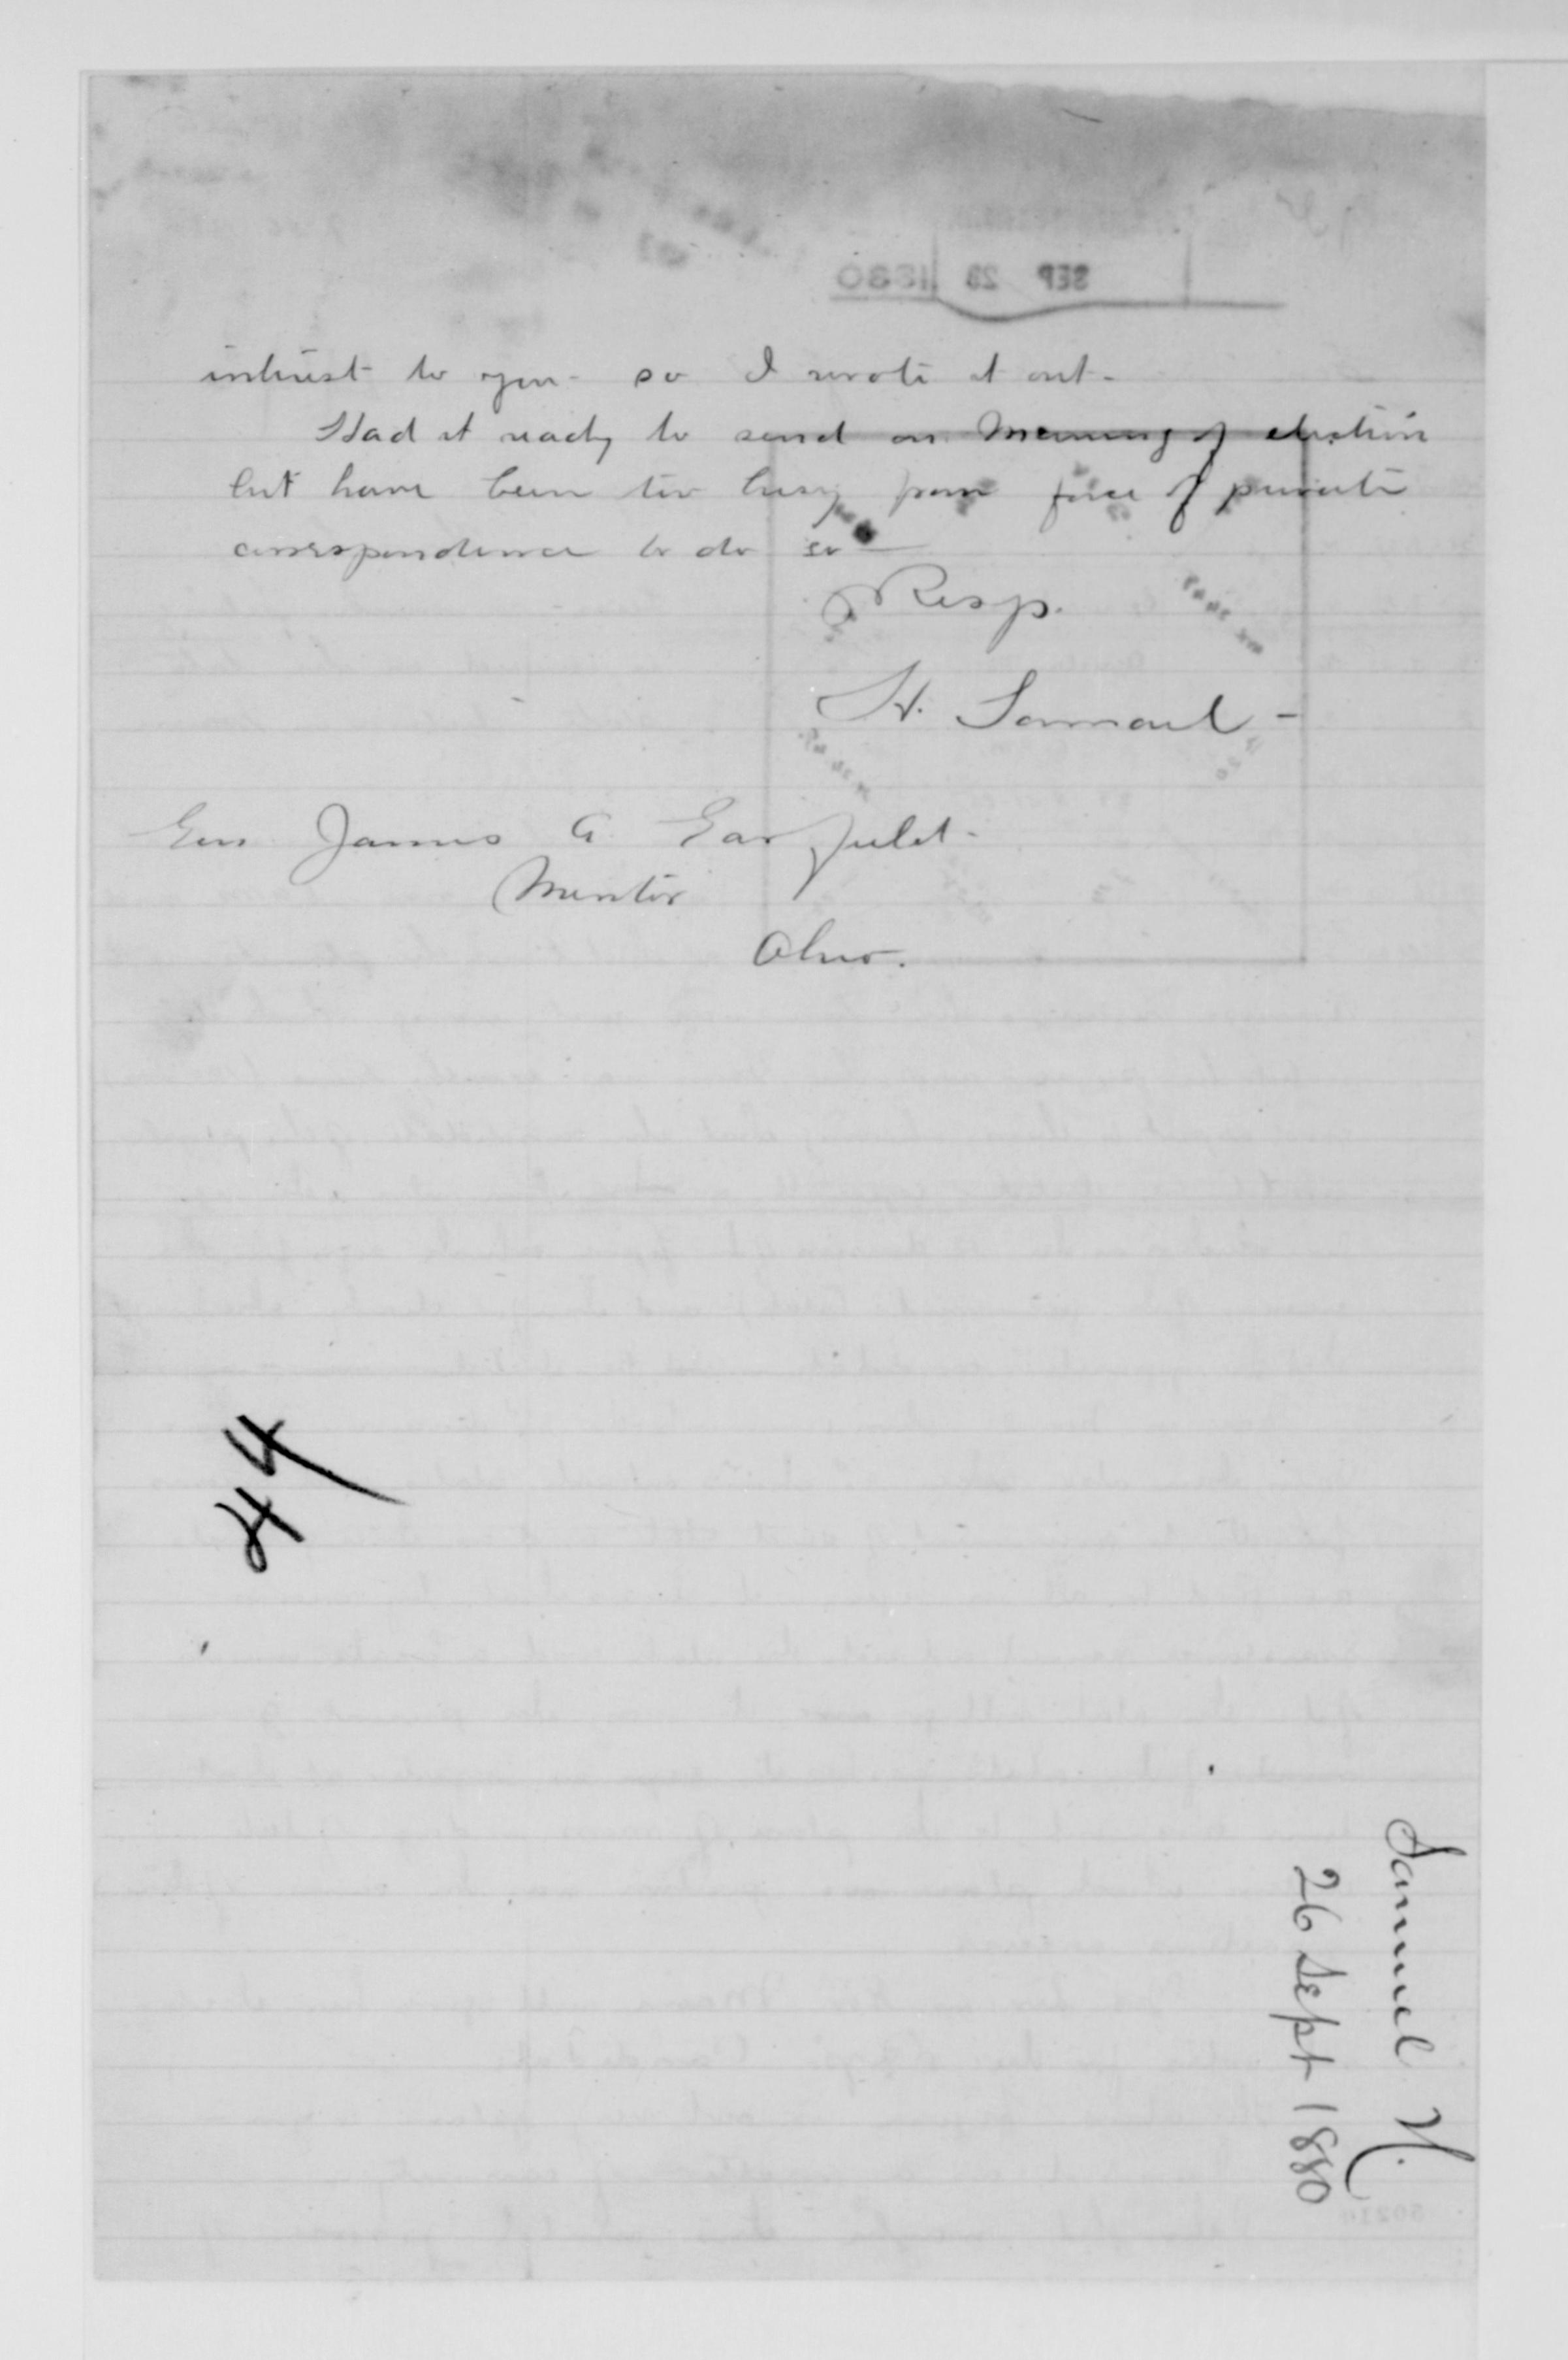 SEP 28 1880
interest to you - so I wrote it out -
Had it ready to send on morning of election
but have been too busy from force of private
correspondence to do so —
Resp.
H. Samuel -
Gen James A Garfield -
Mentor
Ohio.
44
Samuel H.
26 Sept 1880